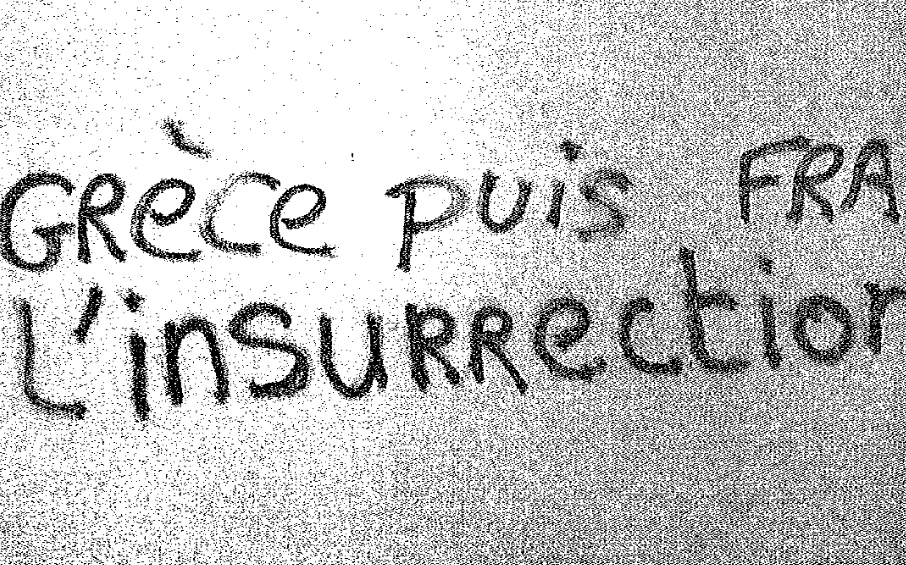 GRèCe puis FRA
L'insuRRection